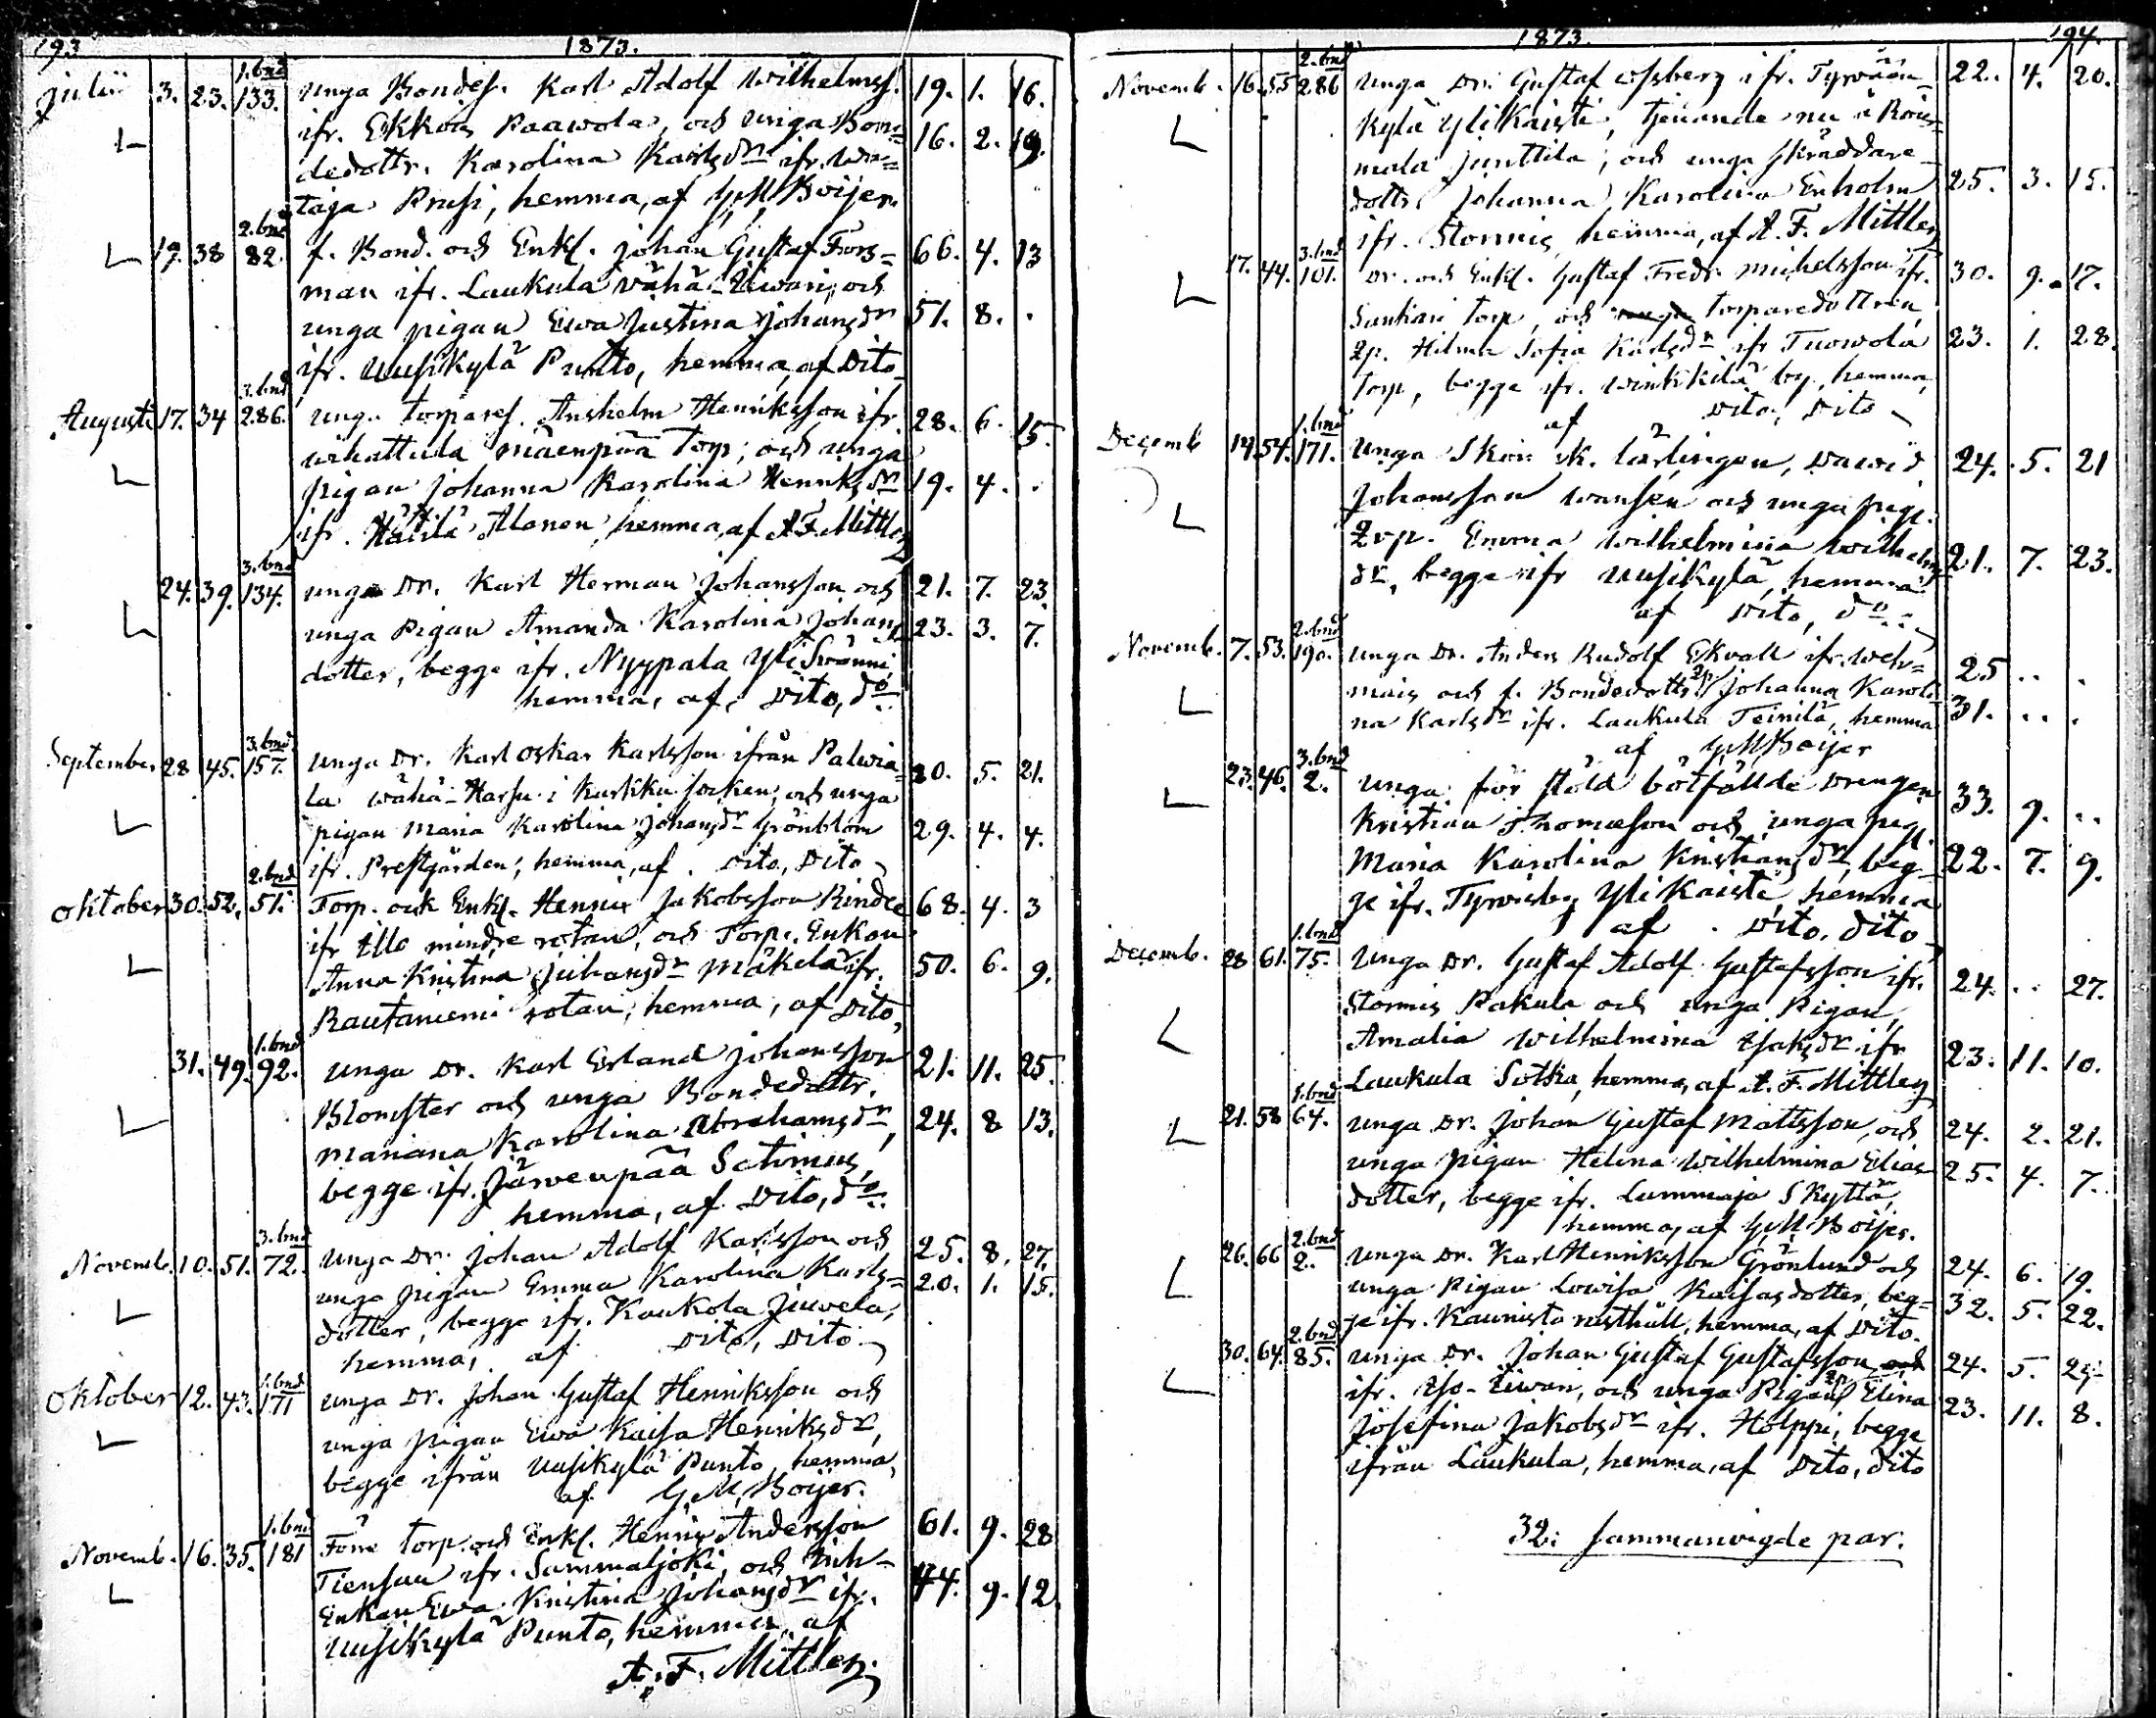 193 1873.
1. bnd
Julii 3. 23. 133. unga Bondes. Karl Adolf Wilhelmss. 19. 1. 16.
ifr. Ekkois Paawola, och unga Bon= 16. 2. 19.
dedottr. Karolina Karlsdr ifr.
taja Prusi, hemma, af G. M. Boijer.
2. bnd
19. 38 82. f. Bond. och Enkl. Johan Gustaf Fors= 66. 4. 13
man ifr. Laukula Wähä-Liwari, och
unga pigan Ewa Justina Johansdr 51. 8. .
ifr. Uusikylä Punto, hemma, af Dito
3. bnd
Augusti 17. 34 286. unga torpares. Anshelm Henriksson ifr. 28. 6. 15.
wihattula mäenpää Torp; och unga
pigan Johanna Karolina Henriksdr 19. 4. .
ifr. Häisilä Alanen, hemma, af A. F. Mittler
3. bnd
24. 39. 134. unga Dr. Karl Herman Johansson och 21. 7. 23.
unga Pigan Amanda Karolina Johans 23. 3. 7.
dotter, begge ifr. Nyypala Yli Swänni,
hemma, af, Dito, do
3. bnd
September 28 45. 157. unga Dr. Karl Oskar Karlsson ifrån Palwia= 20. 5. 21.
la wähä-Harsu i Karkku socken, och unga
pigan Maria Karolina Johansdr Grönblom 29. 4. 4.
ifr. Prestgården; hemma, af Dito, Dito
2. bnd
Oktober 30. 52. 51. Torp. och Enkl. Henrik Jakobsson Rindee 68. 4. 3
ifr Illo mindre rotan, och Torp. Enkan
Anna Kristina Juhansdr Mäkelä ifr. 50. 6. 9.
Rautaniemi rotan; hemma, af Dito,
1. bnd
31. 49. 92. unga Dr. Karl Erland Johansson 21. 11. 25.
Blomster och unga Bondedottr.
Mariana Karolina Abrahamsdr, 24. 8 13.
begge ifr. Järwenpää Sctimus,
hemma, af Dito, do.
3. bnd
Novemb. 10. 51. 72. unga Dr. Johan Adolf Karlsson och 25. 8. 27.
unga pigan Emma Karolina Karls= 20. 1. 15.
dotter, begge ifr. Kaukola Juwela,
hemma, af Dito, Dito
1. bnd
Oktober 12. 43. 171 unga Dr. Johan Gustaf Henriksson och
unga pigan Ewa Kaisa Henriksdr,
begge ifrån Uusikylä Punto, hemma,
af G. M. Boijer.
1. bnd
Novemb. 16. 35. 181 Förre torp. och Enkl. Henrik Andersson 61. 9. 28
Tiensuu ifr. Sammaljoki, och Inh-
Enkan Ewa Kristina Johansdr ifr. 44. 9. 12.
Uusikylä Punto, hemma, af
A. F. Mittler.
1873 194.
2. bnd
Novemb. 16. 55 286 unga Dr. Gustaf Essberg ifr. Tyrwään 22. 4. 20.
kylä Ylikaisti, tjenande nu i Rois=
mala Junttila; och unga Skräddare-
dottr. Johanna Karolina Enholm 25. 3. 15.
ifr. Stormis, hemma, af A. F. Mittler
3. bnd
17. 44. 101. Dr. och Enkl. Gustaf Fredr Michelsson ifr. 30. 9. 17.
Sunkari torp, och torparedottren,
2p. Hilma Sofia Karlsdr ifr Tuowola 23. 1. 28.
Torp, begge ifr. Winkkilä by, hemma,
af Dito, Dito
1. bnd
Decemb 14. 54. 171. unga Skom. lärlingen, Dawid 24. 5. 21
Johansson Wansen och unga pig.
2vp. Emma Wilhelmina Wilhelms 21. 7. 23.
dr, begge ifr Uusikylä, hemma
af Dito, do.
2. bnd
Novemb. 7. 53. 190. unga Dr. Anders Rudolf Ekvall ifr. Weh= 25 .. .
mais och f. Bondedottr. 2p Johanna Karoli
na Karlsdr ifr. Laukula Teinilä, hemma 31. .. .
af G. M. Boijer
3. bnd
23. 46. 2. unga för stöld bötfällde Drengen 33. 9. ..
Kristian Thomasson och unga pig.
Maria Karolina Kristiansdr, beg= 22. 7. 9.
ge ifr. Tyrwisby Ylikaisti hemma
af Dito, dito
1. bnd
Decemb. 28 61. 75. unga Dr. Gustaf Adolf Gustafsson ifr. 24. .. 27.
Stormis Pakula och unga Pigan,
Amalia Wilhelmina Isaksdr ifr 23. 11. 10.
Laukula Sotka, hemma, af A. F. Mittler
1. bnd
21. 58 64. unga Dr. Johan Gustaf Mattsson, och 24. 2. 21.
unga pigan Helena Wilhelmina Elias 25. 4. 7.
dotter, begge ifr. Lummaja Skyttä,
hemma, af G. M. Boijer.
2. bnd
26. 66 2. unga Dr. Karl Henriksson Grönlund och 24. 6. 19.
unga Pigan Lowisa Kaisasdotter, beg= 32. 5. 22.
ge ifr. Kaunisto rusthåll, hemma, af Dito.
2. bnd
30. 64. 85. unga Dr. Johan Gustaf Gustafsson 24. 5. 25
ifr. Iso-Liwari, och unga Pigan 2p Elina
Josefina Jakobsdr ifr. Holppi, begge 23. 11. 8.
ifrån Laukula, hemma, af Dito, Dito
32: sammanvigde par.